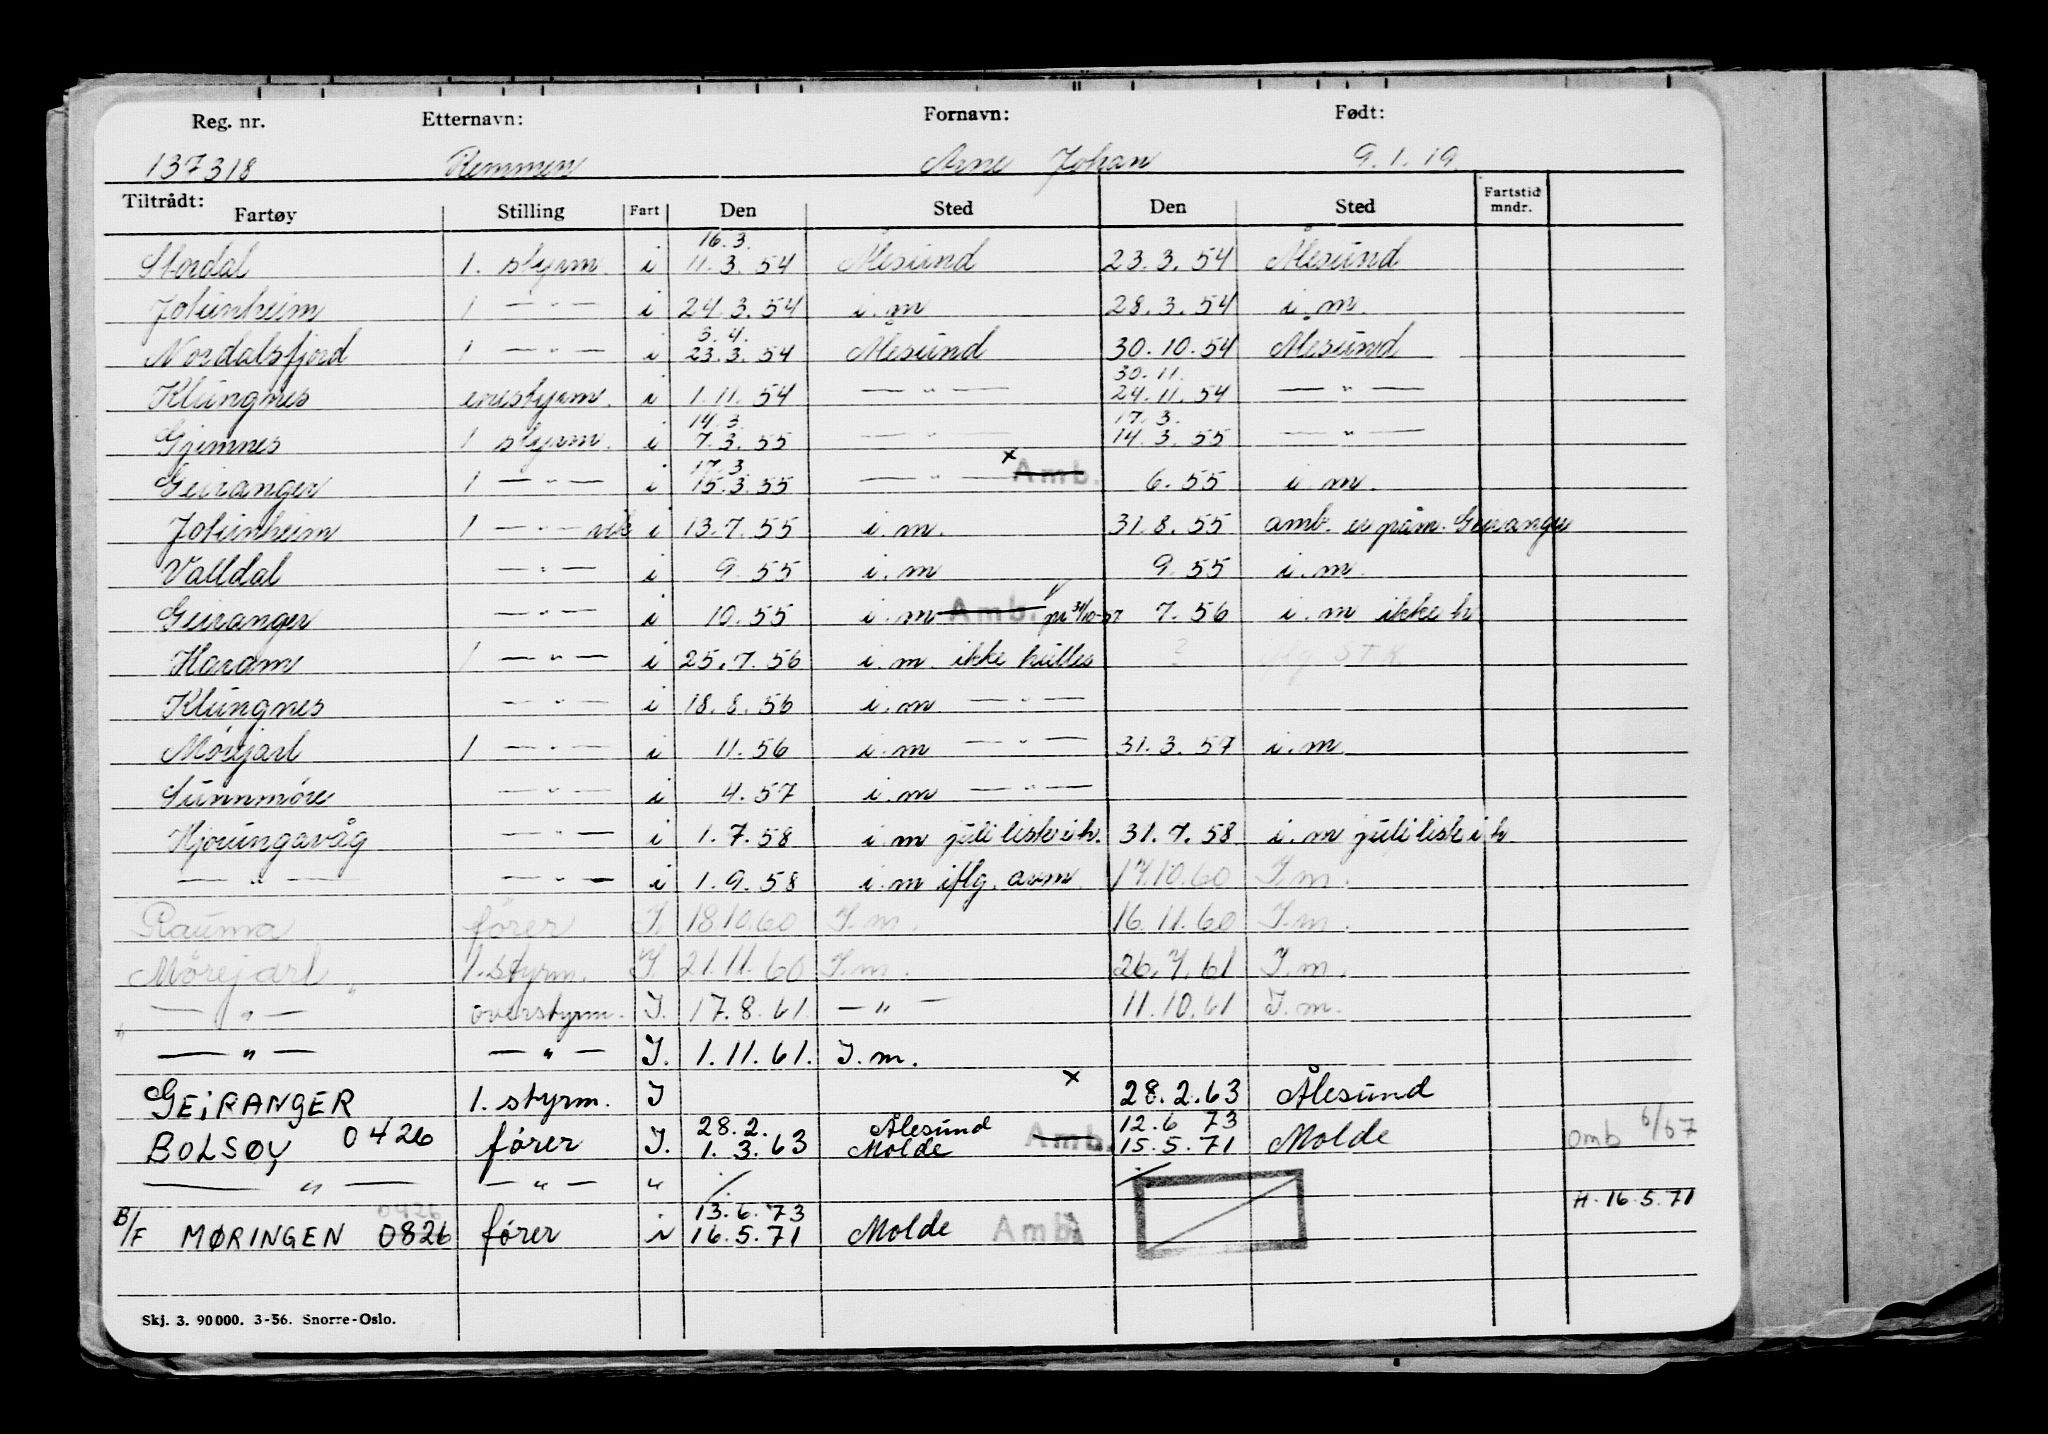 Reg. nr. Etternavn: Fornavn: Født:
137318 Remmen Arne Johan 9.1.19.
Tiltrådt: Fartøy Stilling Fart Den Sted Den Sted Fartstid mndr.
16.3.
Stordal 1. styrm. i 11.3.54 Ålesund 23.3.54 Ålesund
Jotunheim 1 — " — i 24.3.54 i.m 28.3.54 i.m.
3.4.
Nordalsfjord 1 — " — i 23.3.54 Ålesund 30.10.54 Ålesund
30.11.
Klungnes enestyrm. i 1.11.54 — " — 24.11.54 — " —
14.3. 17.3.
Gjemnes 1 styrm. i 7.3.55 — " — 14.3.55 — " —
17.3. x
Geiranger 1 — " — i 15.3.55 — " — Amb. 6.55 i.m.
Jotunheim 1 — " — vik i 13.7.55 i.m. 31.8.55 amb. er påm. Geiranger
Valldal — " — i 9.55 i.m 9.55 i.m.
Geiranger — " — i 10.55 i.m Amb. pr 31/10-57 7.56 i.m ikke h
Haram 1 — " — i 25.7.56 i.m. ikke hülles ? iflg. STK
Klungnes — " — i 18.8.56 i.m — " —
Mørejarl 1 — " — i 11.56 i.m — " — 31.3.57 i.m.
Sunnmöre — " — i 4.57 i.m — " —
Hjørungavåg — " — i 1.7.58 i.m juli liste i h. 31.7.58. i.m juli liste i h.
— " — — " — i 1.9.58 i.m iflg. avm. 17.10.60 I.m.
Rauma fører I. 18.10.60 I.m. 16.11.60 I.m.
Mörejarl 1. styrm. I. 21.11.60 I.m. 26.7.61 I.m.
— " — overstyrm. I. 17.8.61. — " — 11.10.61 I.m.
— " — — " — I. 1.11.61. I.m.
x
GEIRANGER 1. styrm. I 28.2.63 Ålesund
28.2. Ålesund 12.6 73
BOLSØY 0426 fører I. 1.3.63 Molde Amb. 15.5.71 Molde omb 6/67
— " — — " — " ./. ./.
0426 13.6.73 H. 16.5.71
B/F MØRINGEN 0826 fører i 16.5.71 Molde Amb.
Skj. 3. 90 000. 3-56. Snorre-Oslo.